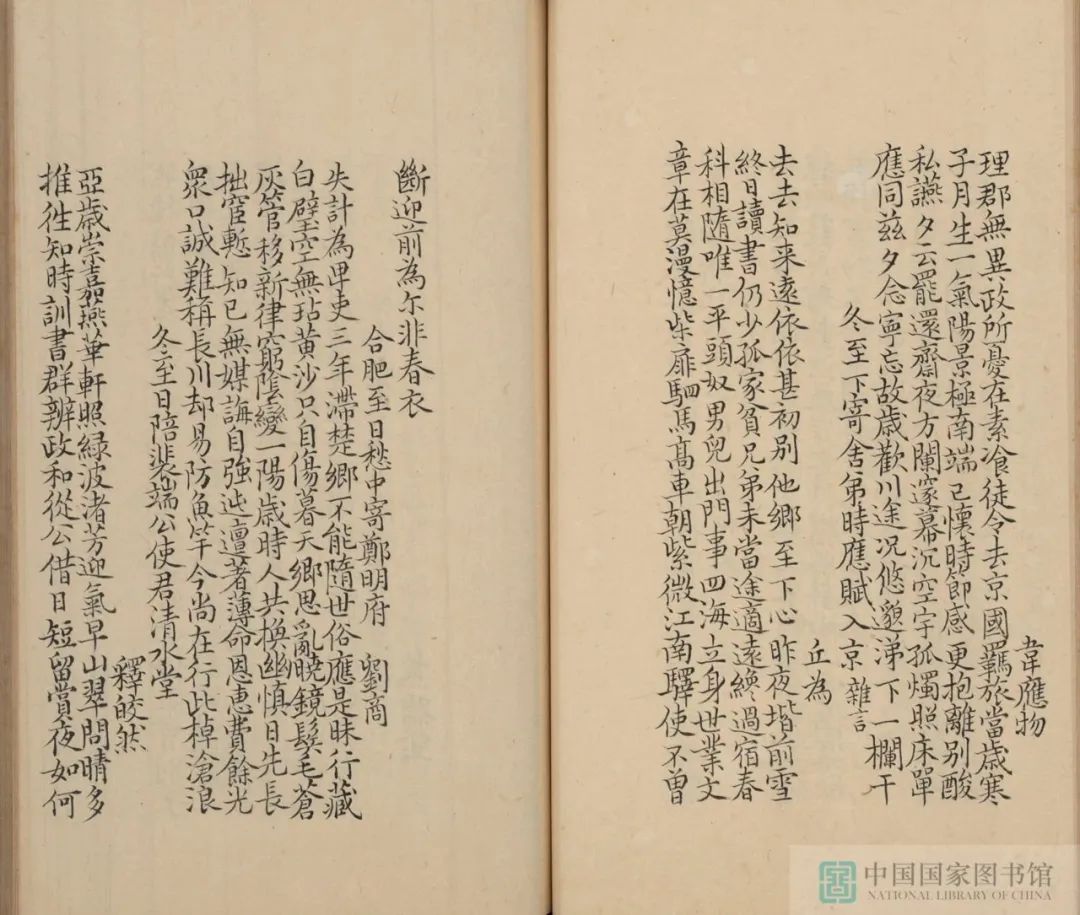 韋應物
理郡無異政所憂在素飡徒令去京國羈旅當歲寒
子月生一氣陽景極南端已懷時節感更抱離別酸
私讌夕云罷還齋夜方闌邃幕沉空宇孤燭照床單
應同兹夕念寧忘故歲歡川途况悠邈涕下一欄干
冬至下寄舍弟時應賦入京雜言
丘為
去去知来遠依依甚初別他鄉至下心昨夜堦前雪
終日讀書仍少孤家貧兄弟未當途適遠終過宿舂
科相隨唯一平頭奴男兒出門事四海立身世業文
章在莫漫憶柴扉駟馬髙車朝紫微江南驛使不曾
斷迎前為尓非春衣
合肥至日愁中寄鄭明府
劉商
失計為卑吏三年滯楚鄉不能隨世俗應是昧行藏
白璧空無玷黄沙只自傷暮天鄉思亂曉鏡鬂毛蒼
灰管移新律窮陰變一陽歲時人共換幽憤日先長
拙宦慙知已無媒誨自強迍邅著薄命恩惠費餘光
衆口誠難稱長川却易防魚竿今尚在行此棹滄浪
冬至日陪裴端公使君清水堂
釋皎然
亞歲崇嘉燕華軒照綠波渚芳迎氣早山翠問晴多
推徃知時訓書群辨政和從公借日短留賞夜如何
中国国家图书馆
NATIONAL LIBRARY OF CHINA